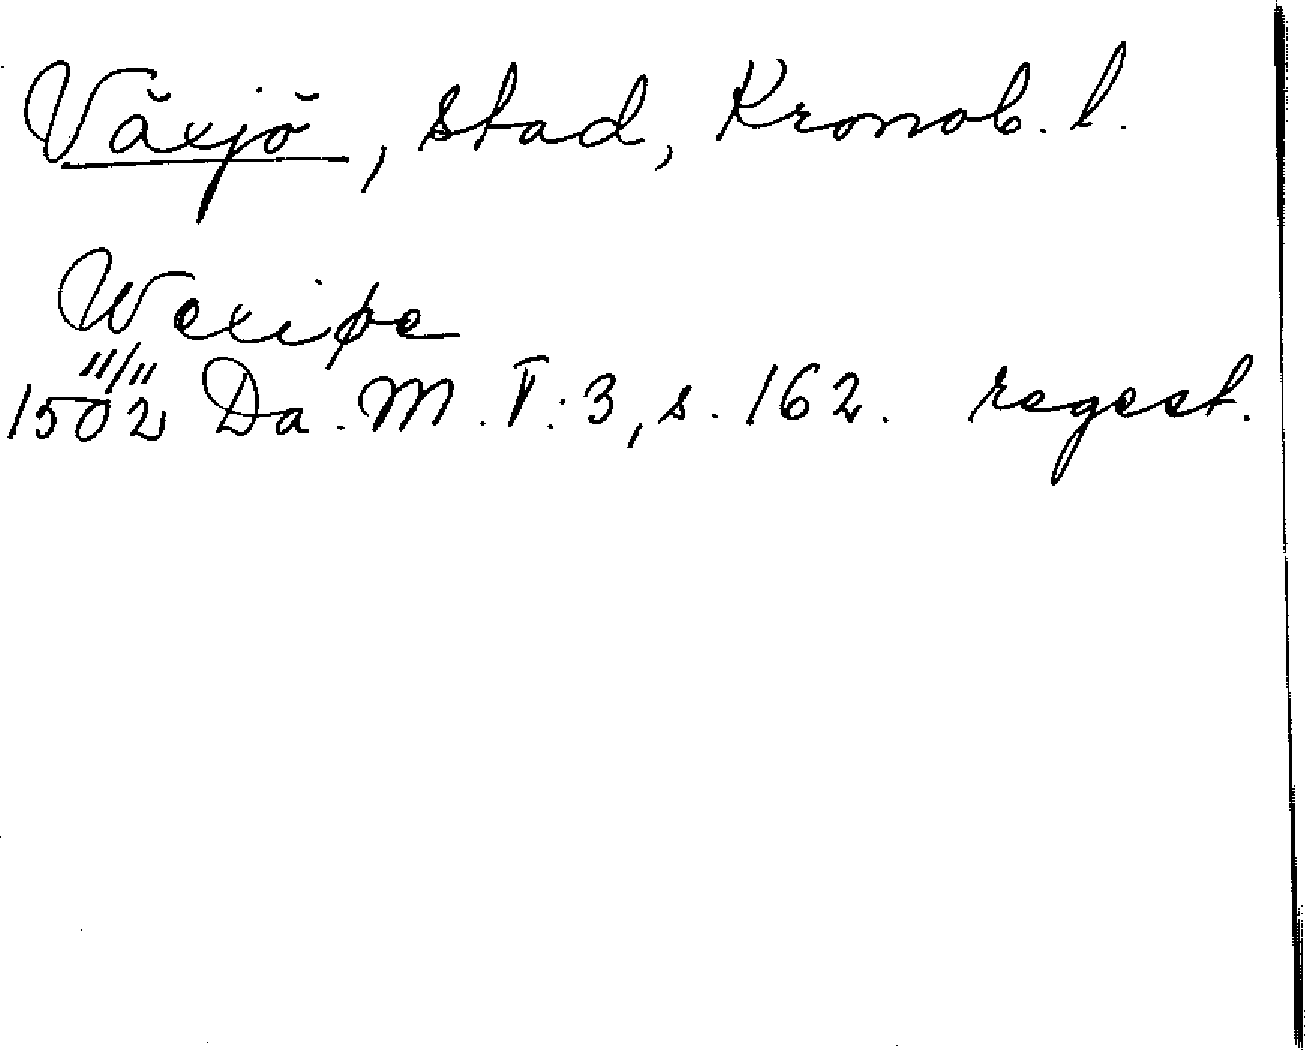 Växjö, stad, Kronob. l.
Wexiøe
11/11
1502 Da. M. V:3, s. 162. regest.